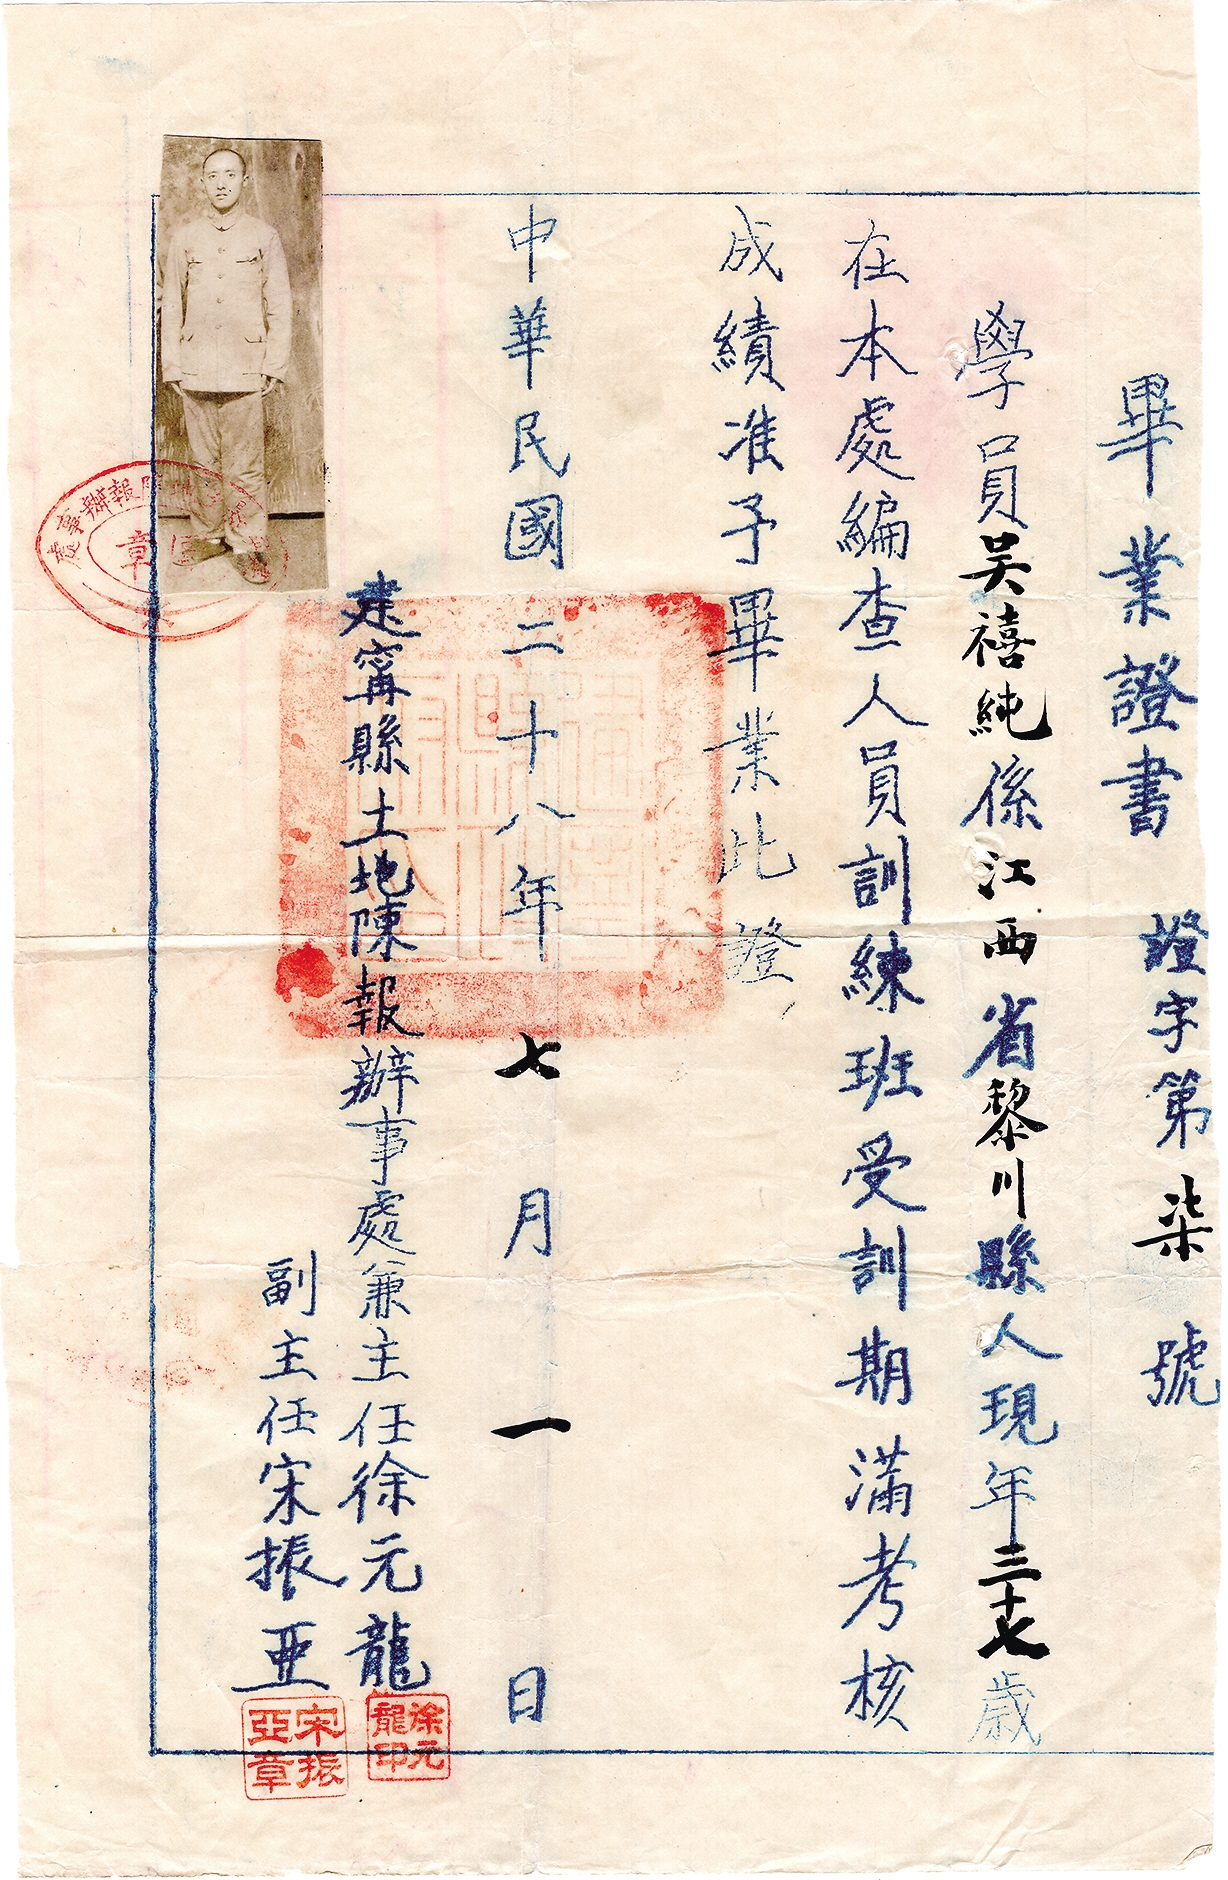 畢業證書 證字第柒號
學員吳禧純係江西省黎川縣人現年三十七歲
在本處編查人員訓練班受訓期滿考核
成績准予畢業此證
中華民國二十八年七月一日
建甯縣土地陳報辦事處兼主任徐元龍
副主任宋振亞
徐元龍印
宋振亞章
報辦事處
章